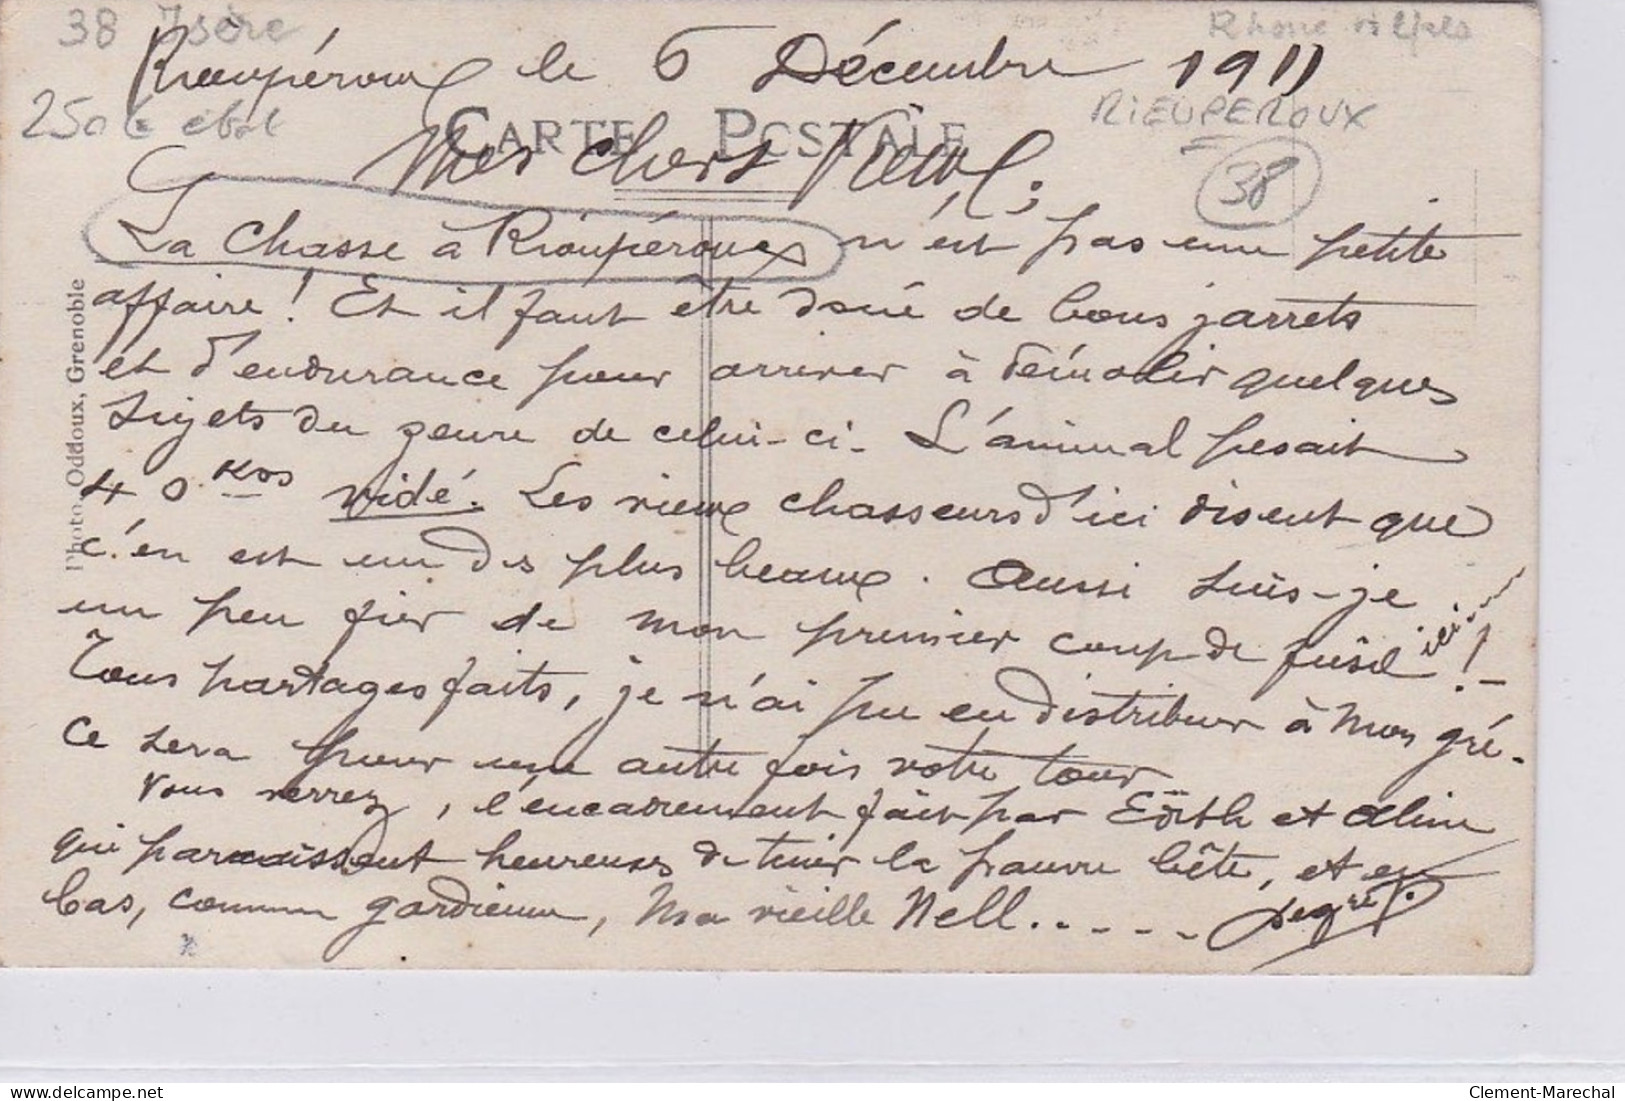 38 Isère
Rioupéroux le 6 Décembre 1911
250
RIEUPEROUX
CARTE POSTALE
38
Mes chers Vieux;
La chasse à Rioupéroux n'est pas une petite
affaire! Et il faut être doué de bons jarrets
et d'endurance pour arriver à démolir quelques
sujets du genre de celui-ci. L'animal pesait
40 kos vidé. Les vieux chasseurs d'ici disent que
c'en est un des plus beaux. Aussi suis-je
un peu fier de mon premier coup de fusil ici!-
Tous partages faits, je n'ai pu en distribuer à mon gré.
Ce sera pour une autre fois votre tour
Vous verrez, l'encadrement fait par Edith et Aline
qui paraissent heureuses de tenir la pauvre bête, et en
bas, comme gardienne, ma vieille Nell.....
Photo. Oddoux, Grenoble
delcampe.net
Clement-Marechal